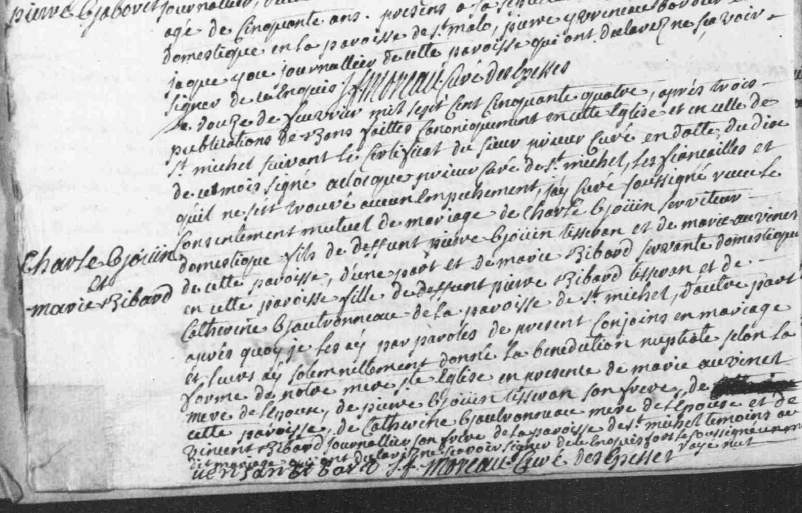 pierre Gaboret journallier,
agé de Cinquante ans. presens a la
domestique en la paroisse de st. malo, pierre
jaque journallier de cette paroisse qui ont declarez ne sçavoir
signer de ce Enquis J. f. Moreau Curé des Epesses
Le Douze de fevrier mil sept Cent Cinquante quatre, apres trois
publications de Bans faittes Canoniquement en cette Eglise et en celle de
st. michel suivant le Certificat du sieur prieur Curé en datte du dix
de ce mois signé prieur Curé de st. michel, les fiancailles et
qu'il ne s'est trouvé aucun Empeschement, jay Curé soussigné receu le
Consentement mutuel de mariage de Charle Gjoüin serviteur
domestique fils de deffunt pierre Gjoüin tisseran et de marie auvinet
de cette paroisse, d'une part et de marie Ribard servante domestique
en cette paroisse fille de deffunt pierre Ribard tisseran et de
Catherine Gautronneau de la paroisse de st. michel, d'autre part
Charle Gjoüin
et
marie Ribard
apres quoy je les ay par paroles de present Conjoins en mariage
et leurs ay solemnellement donné la benediction nuptiale selon la
forme de notre mere ste. Eglise en presence de marie auvinet
mere de l'Epoux, de pierre Gjoüin tisseran son frere, de
cette paroisse, de Catherine Gautronneau mere de l'Epouse et de
vincent Ribard journallier son frere de la paroisse de st. michel temoins au
dit mariage qui ont declarez ne sçavoir signer de ce Enquis fors le soussigné un mot
J. f. Moreau Curé des Epesses rayé nul